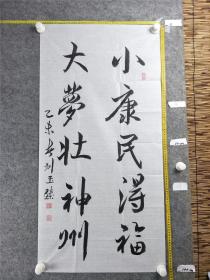 小康民得福
大夢壯神州
乙未春刘玉臻